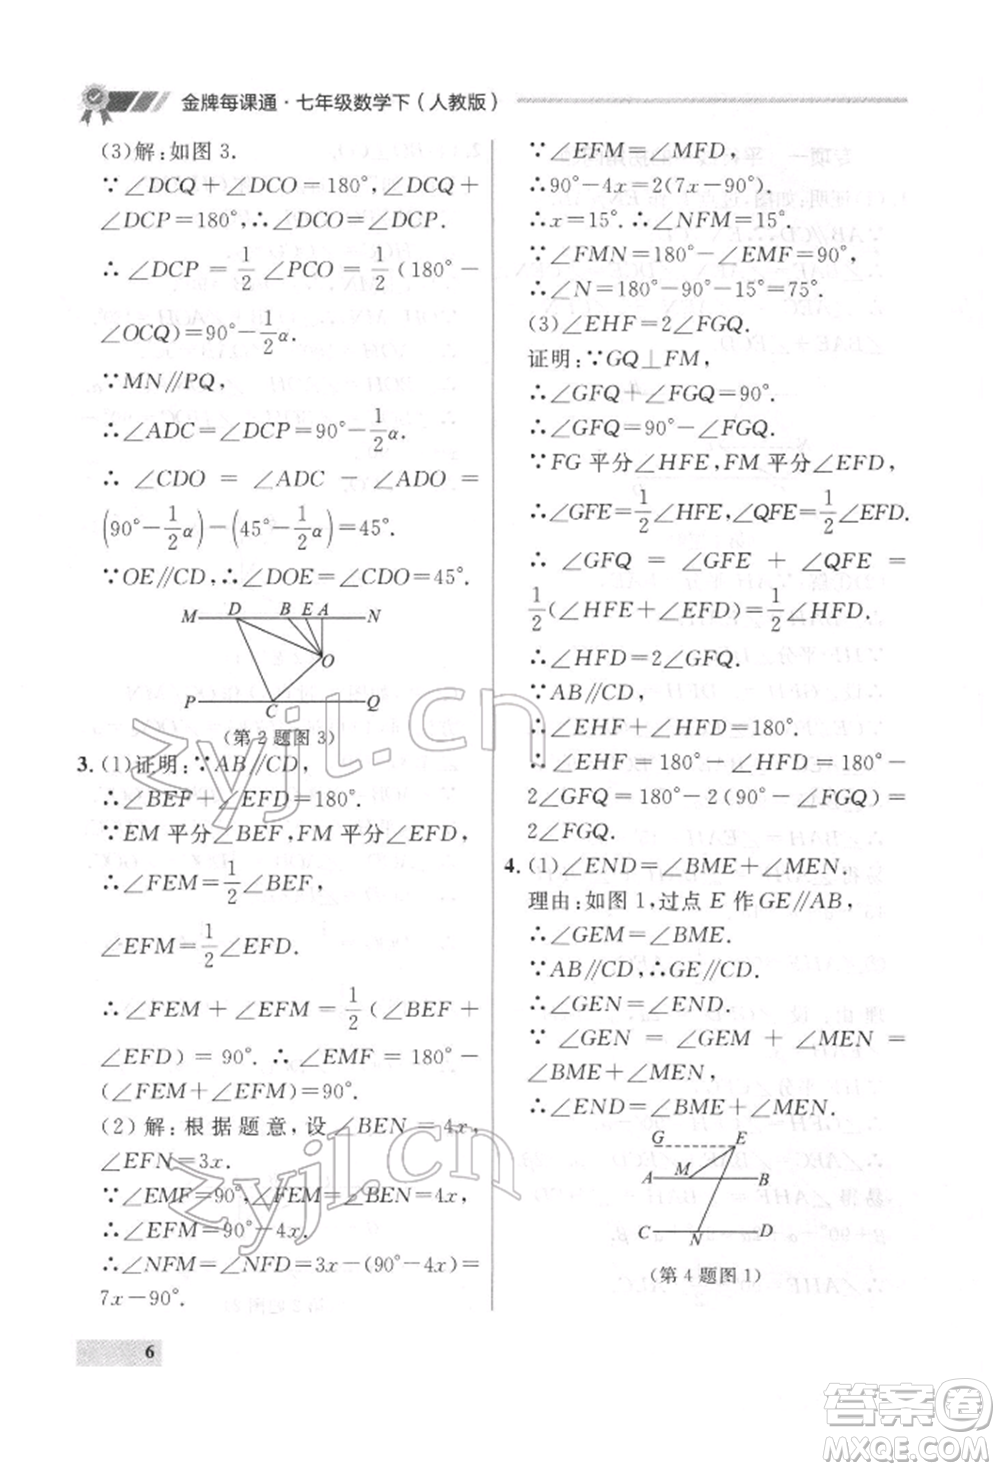 金牌每课通·七年级数学下(人教版)
(3)解:如图 3.
∵∠DCQ+∠DCO=180°,∠DCQ+
∠DCP=180°,∴∠DCO=∠DCP.
∴∠DCP=1/2∠PCO=1/2(180°-
∠OCQ)=90°-1/2α.
∵MN∥PQ,
∴∠ADC=∠DCP=90°-1/2α.
∴∠CDO=∠ADC-∠ADO=
(90°-1/2α)-(45°-1/2α)=45°.
∵OE∥CD,∴∠DOE=∠CDO=45°.
M D B E A N
O
P C Q
(第 2 题图 3)
3. (1)证明:∵AB∥CD,
∴∠BEF+∠EFD=180°.
∵EM 平分∠BEF,FM 平分∠EFD,
∴∠FEM=1/2∠BEF,
∠EFM=1/2∠EFD.
∴∠FEM+∠EFM=1/2(∠BEF+
∠EFD)=90°.∴∠EMF=180°-
(∠FEM+∠EFM)=90°.
(2)解:根据题意,设∠BEN=4x,
∠EFN=3x.
∵∠EMF=90°,∠FEM=∠BEN=4x,
∴∠EFM=90°-4x.
∴∠NFM=∠NFD=3x-(90°-4x)=
7x-90°.
∵∠EFM=∠MFD,
∴90°-4x=2(7x-90°).
∴x=15°.∴∠NFM=15°.
∵∠FMN=180°-∠EMF=90°,
∴∠N=180°-90°-15°=75°.
(3)∠EHF=2∠FGQ.
证明:∵GQ⊥FM,
∴∠GFQ+∠FGQ=90°.
∴∠GFQ=90°-∠FGQ.
∵FG 平分∠HFE,FM 平分∠EFD,
∴∠GFE=1/2∠HFE,∠QFE=1/2∠EFD.
∴∠GFQ=∠GFE+∠QFE=
1/2(∠HFE+∠EFD)=1/2∠HFD.
∴∠HFD=2∠GFQ.
∵AB∥CD,
∴∠EHF+∠HFD=180°.
∴∠EHF=180°-∠HFD=180°-
2∠GFQ=180°-2(90°-∠FGQ)=
2∠FGQ.
4. (1)∠END=∠BME+∠MEN.
理由:如图 1,过点 E 作GE∥AB,
∴∠GEM=∠BME.
∵AB∥CD,∴GE∥CD.
∴∠GEN=∠END.
∵∠GEN=∠GEM+∠MEN=
∠BME+∠MEN,
∴∠END=∠BME+∠MEN.
G E
A M B
C N D
(第 4 题图 1)
6
zyjl.cn
zyjl.cn
答案圈
MXQE.COM